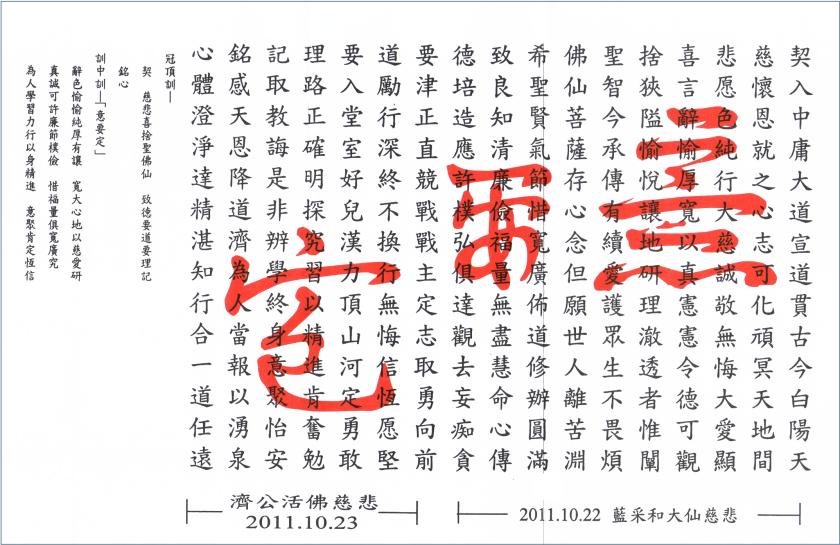 契入中庸大道宣道貫古今白陽天
慈懷恩就之心志可化頑冥天地間
悲愿色純行大慈誠敬無悔大愛顯
喜言辭愉厚寬以真憲憲令德可觀
捨狹隘愉悅讓地研理澈透者惟闡
聖智今承傳有續愛護眾生不畏煩
佛仙菩薩存心念但願世人離苦淵
希聖賢氣節惜寬廣佈道修辦圓滿
致良知清廉儉福量無盡慧命心傳
德培造應許樸弘俱達觀去妄痴貪
要津正直競戰戰主定志取勇向前
道勵行深終不換行無悔信恆愿堅
要入堂室好兒漢力頂山河定勇敢
理路正確明探究習以精進肯奮勉
記取教誨是非辨學終身意聚怡安
銘感天恩降道濟為人當報以湧泉
心體澄淨達精湛知行合一道任遠
冠頂訓—
契 慈悲喜捨聖佛仙 致德要道要理記
銘心
訓中訓—「意要定」
辭色愉愉純厚有讓 寬大心地以慈愛研
真誠可許廉節樸儉 惜福量俱寬廣究
為人學習力行以身精進 意聚肯定恆信
2011.10.22 藍采和大仙慈悲
濟公活佛慈悲
2011.10.23